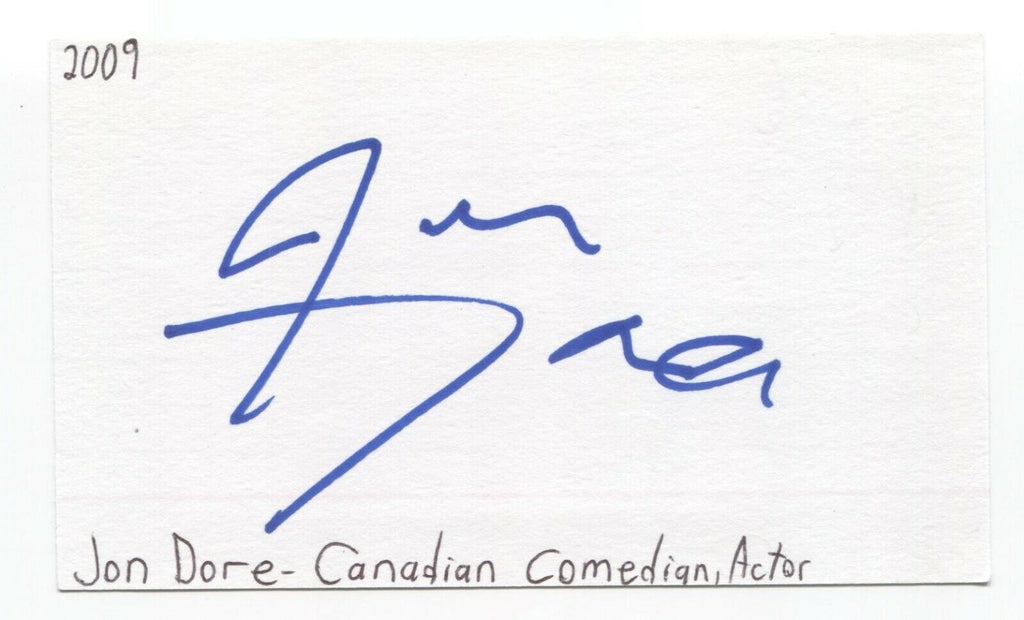 2009
Jon Dore
Jon Dore- Canadian Comedian, Actor